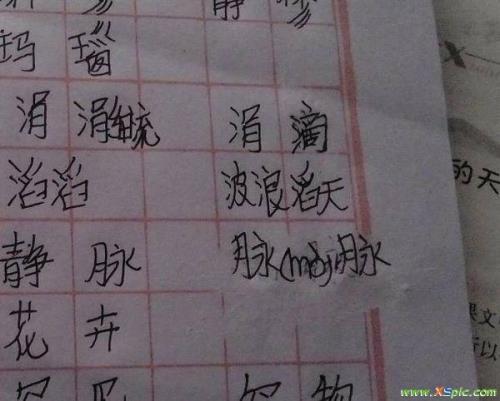 静
玛 瑙
涓 涓 流 涓 滴
滔滔 波浪滔天
静 脉 脉(mò)脉
花 卉
的天
文
以
www.XSpic.com